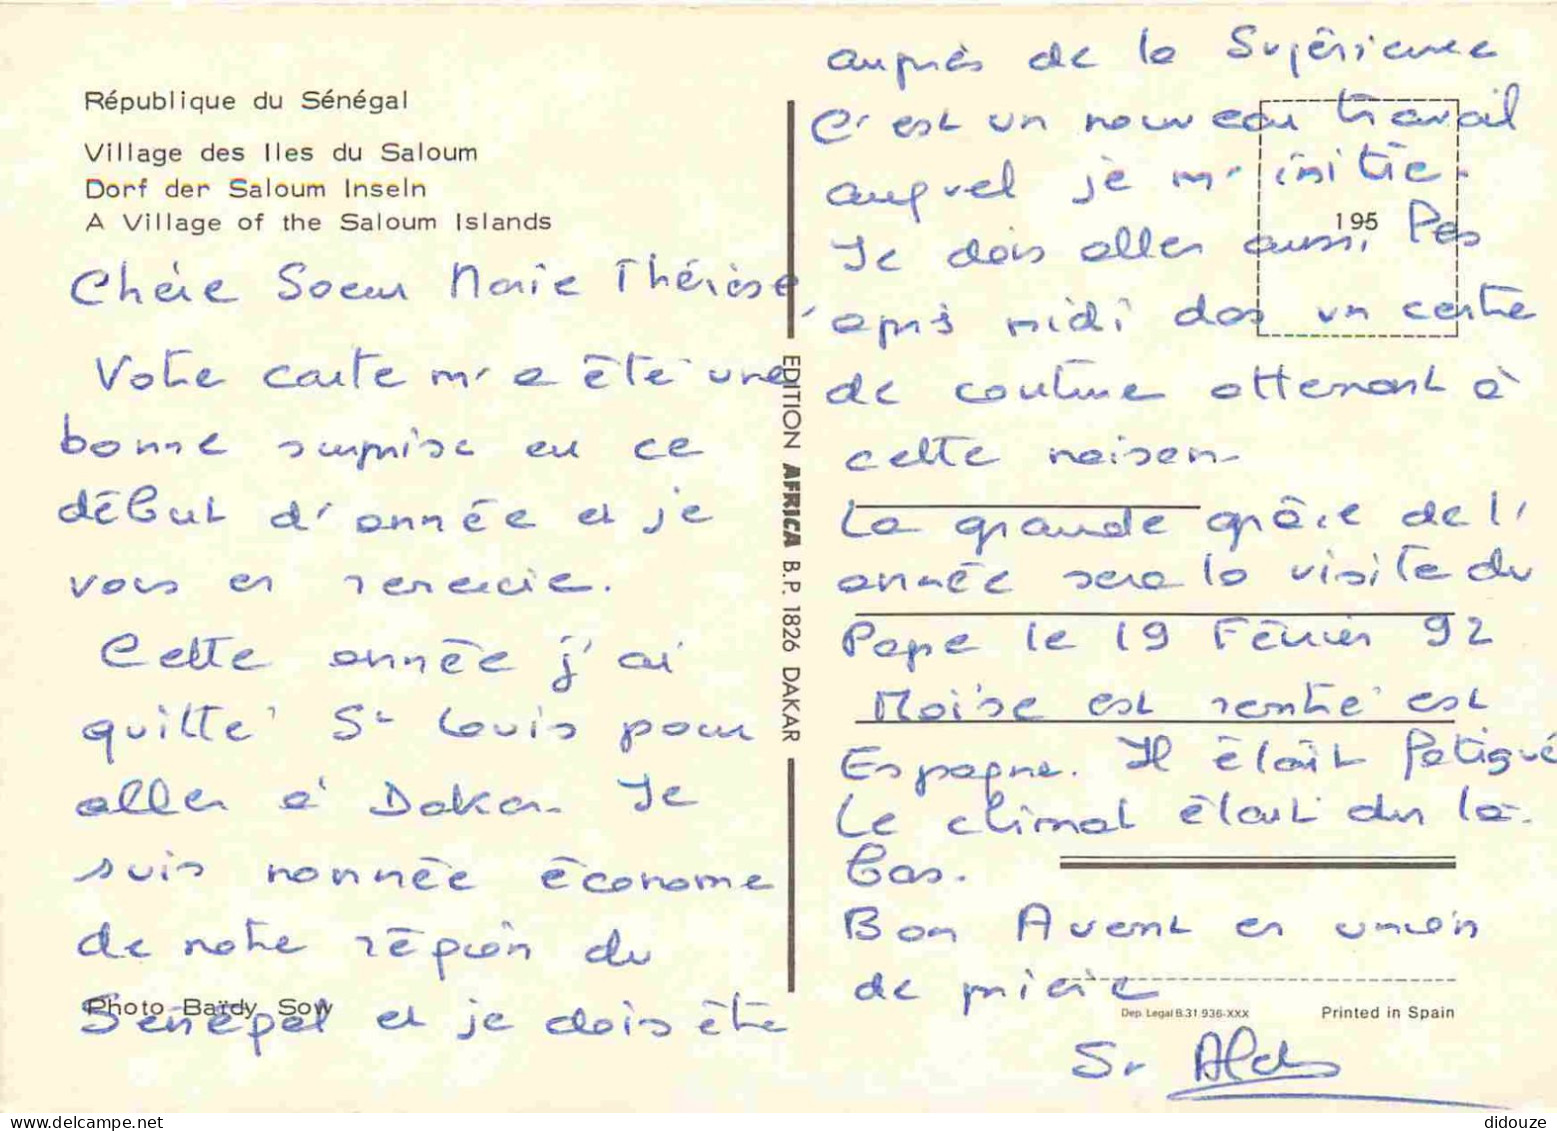 République du Sénégal
Village des Iles du Saloum
Dorf der Saloum Inseln
A Village of the Saloum Islands
Chère Soeur Marie Thérèse,
Votre carte m'a été une
bonne surprise en ce
début d'année et je
vous en remercie.
Cette année j'ai
quitté St Louis pour
aller à Dakar. Je
suis nommée économe
de notre région du
Sénégal et je dois être
Photo Baïdy Sow
EDITION AFRICA B.P. 1826 DAKAR
195
auprès de la Supérieure
C'est un nouveau travail
auquel je m'initie.
Je dois aller aussi les
après midi dans un centre
de couture attenant à
cette maison.
La grande grâce de l'
année sera la visite du
Pape le 19 Février 92
Moïse est rentré est
Espagne. Il était fatigué
Le climat était dur là-
bas.
Bon Avent en union
de prière
Dep. Legal B.31.936-XXX
Printed in Spain
Sr
didouze